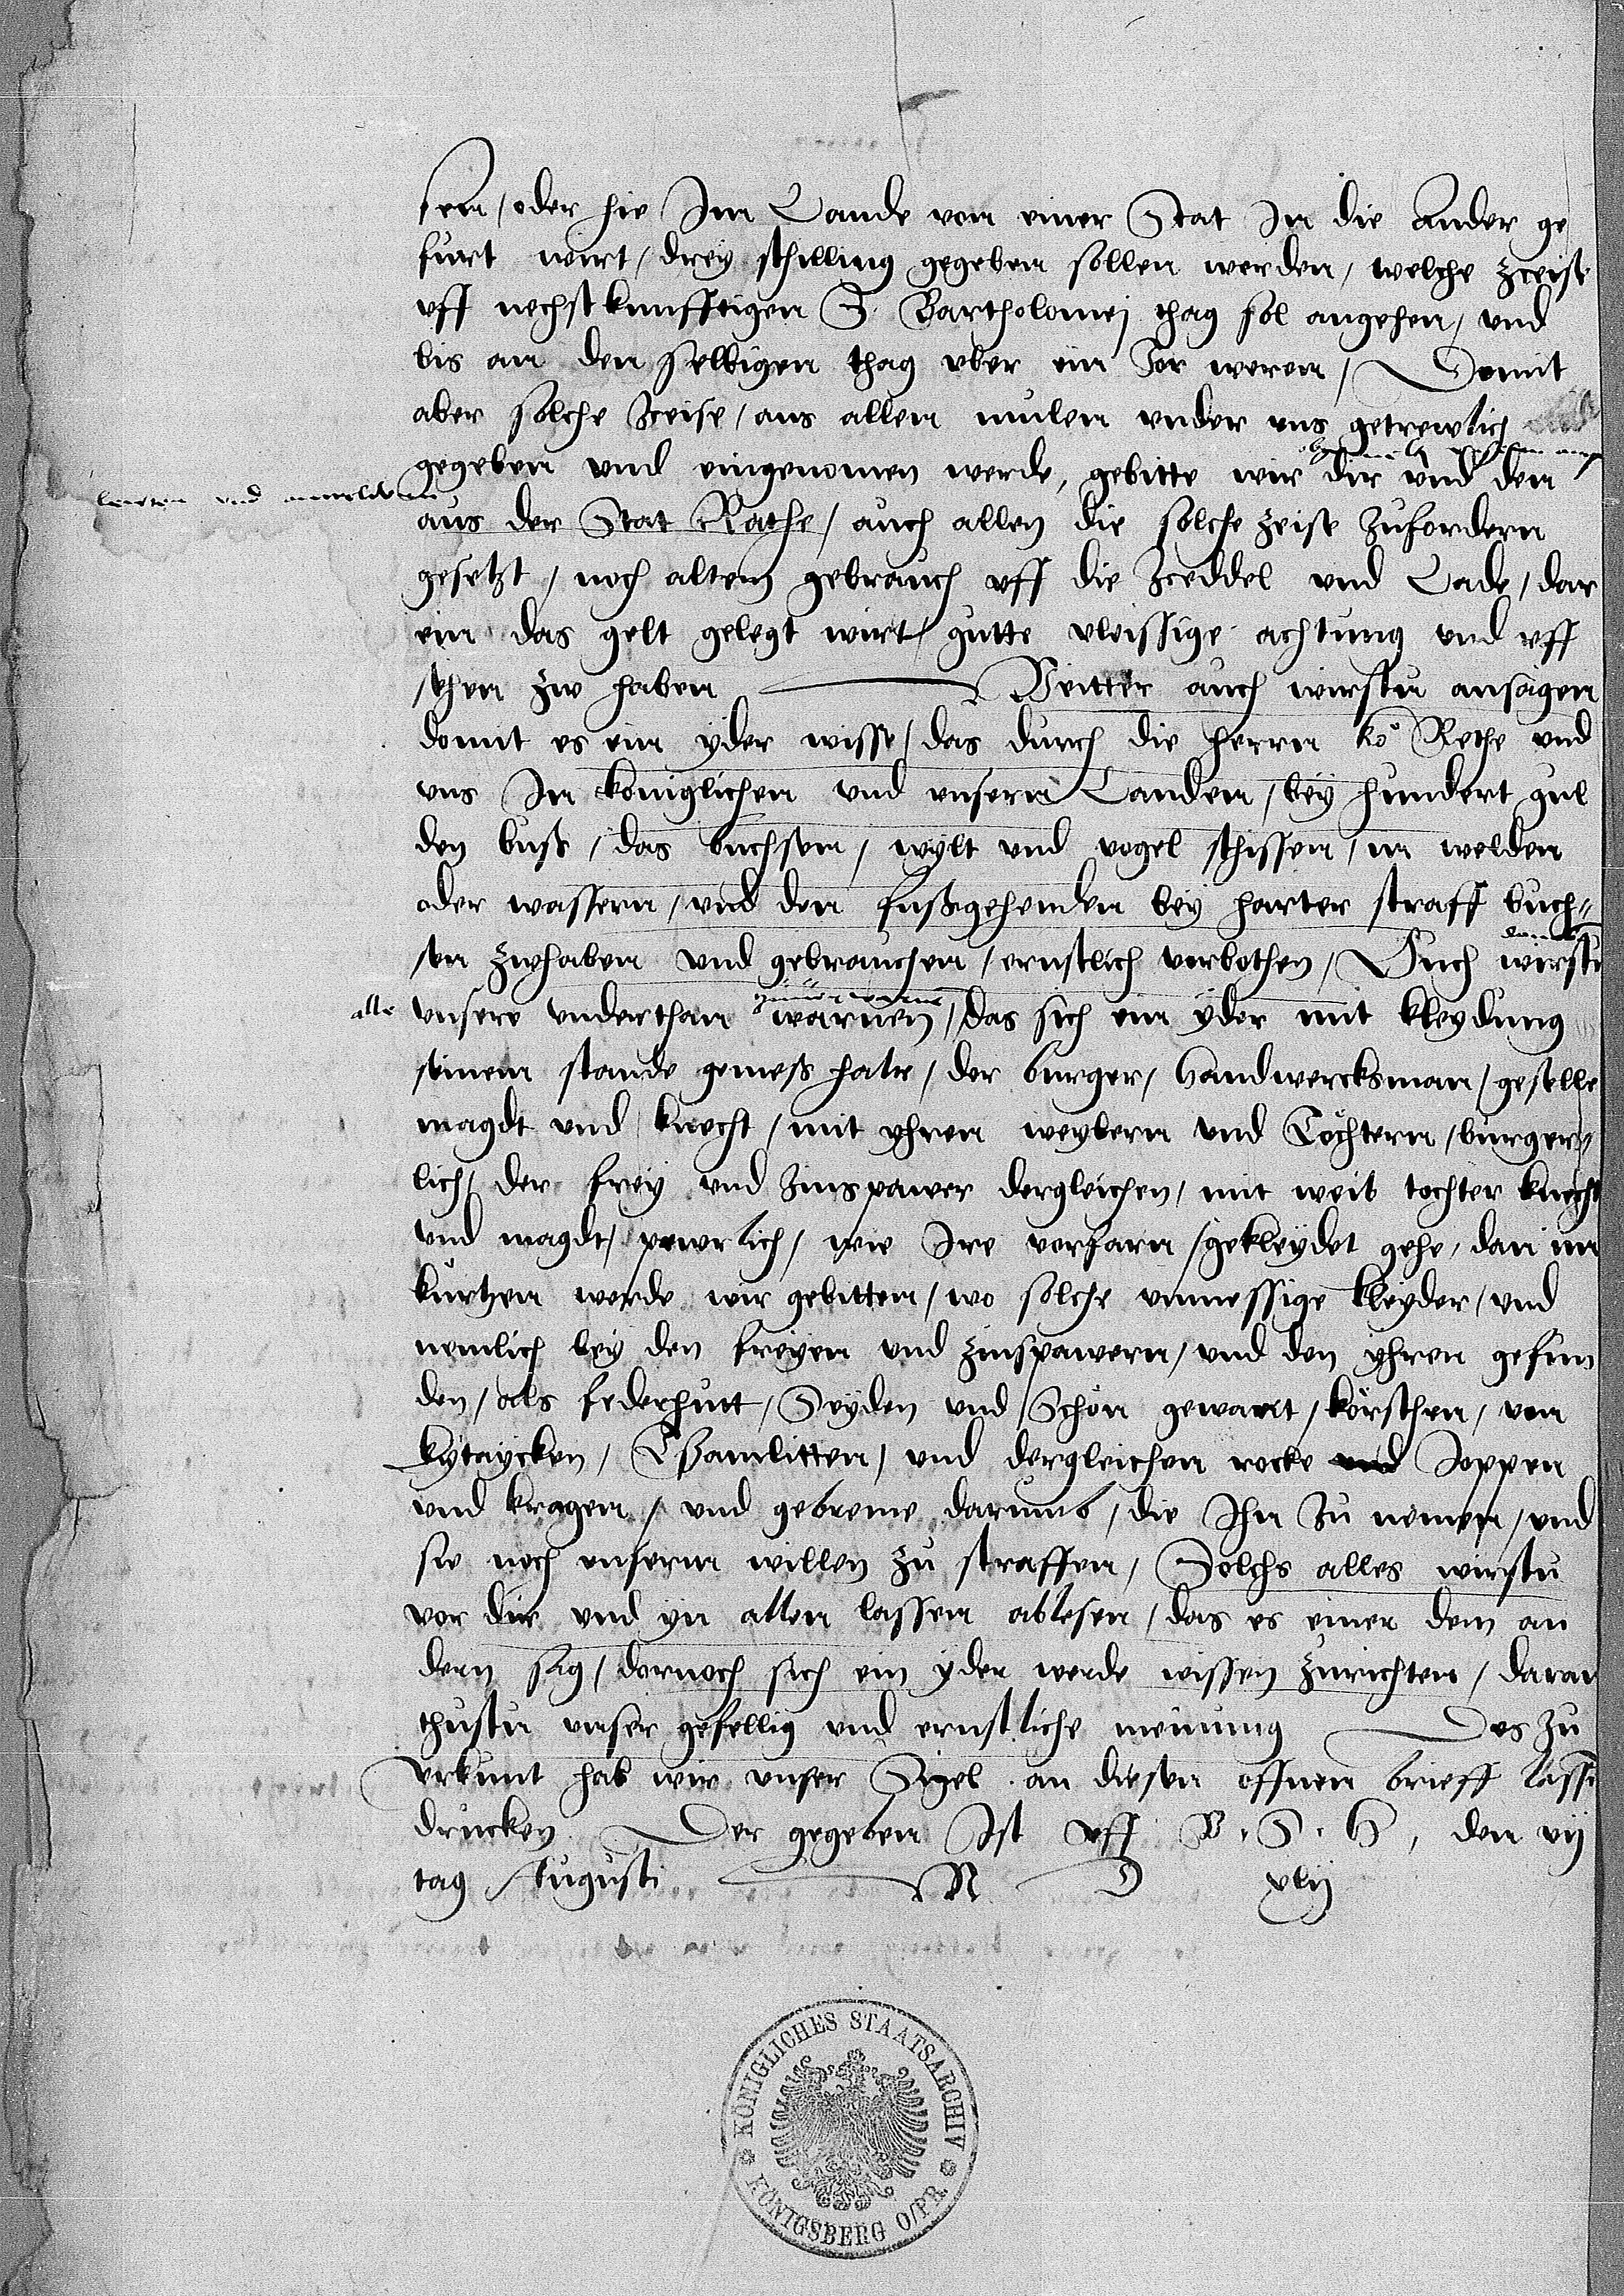 sem / oder hie Im Lande von einer Stat In die Ander ge
furt wirt / drey schilling gegeben sollen werden / welche Zceise
uff nechstkunfftigen S. Bartholomej thag sol angehen / und
bis an den selbigen thag uber ein Jor weren / Domit
aber solche Zceise / aus allen mulen under uns getrewlich
gegeben und eingenomen werde, gebitte wir dir und den
leuten und
aus der Stat Rathe / auch allen die solche Zeise Zufordern
gesetzt / noch altem gebrauch uff die Zceddel und Lade / dar
ein das gelt gelegt wirt / gutte vleissige achtung und uff
sehen zw haben Weitter auch wirstu ansagen
domit es ein yder wisse / das durch die herrn ko Rethe und
uns In koniglichen und unsern Landen / bey hundert gul
den buß / das buchsen / wylt und vogel schissen / in welden
oder wassern / und den fußgehenden bey harter straff buch
sen zwhaben und gebrauchen / ernstlich verbothen / Auch wirstu
alle unsere underthan warnen / das sich ein yder mit kleydung
seinem stande gemeß halte / der burger / Handwercksman / geselle
magdt und knecht / mit yhren weybern und Töchtern / burger
lich / der frey und Zinspawer dergleichen / mit weib tochter knecht
und magdt / pewrlich / wie Ire vorfarn / gekleydet gehe / dan in
kurtzen werde wir gebitten / wo solche unmessige kleyder / und
nemlich bey den freyen und zinspawern / und den yhren gefun
den / als federhutt / Seyden und Schön gewant / körschen / von
kytaycken / Tzamlitten / und dergleichen rocke und Joppen
und kragen / und gebreme darumb / die Ihn Zu nemen / und
sie noch unserm willen zu straffen / Solchs alles wirstu
vor dir und yn allen lassen ablesen / das es einer dem an
dern sag / dornoch sich ein yder werde wissen zurichten / daran
thustu unser gefellig und ernstliche meinung Des zu
urkunt hab wir unser Sigel an diesen offnen brieff lassen
drucken Der gegeben Ist uff B. S. H, den vij
tag Augusti M D xlij
KÖNIGLICHES STAATSARCHIV
KÖNIGSBERG O/PR.